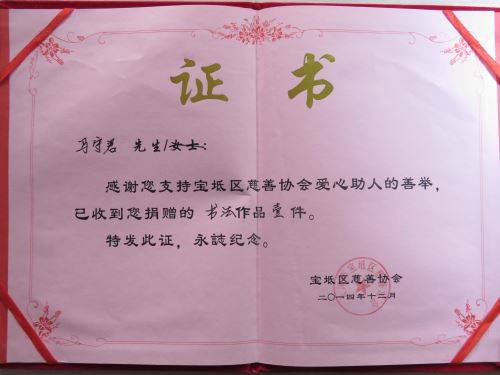 证书
守君 先生/女士：
感谢您支持宝坻区慈善协会爱心助人的善举，
已收到您捐赠的 书法作品壹件。
特发此证，永誌纪念。
宝坻区慈善协会
二〇一四年十二月